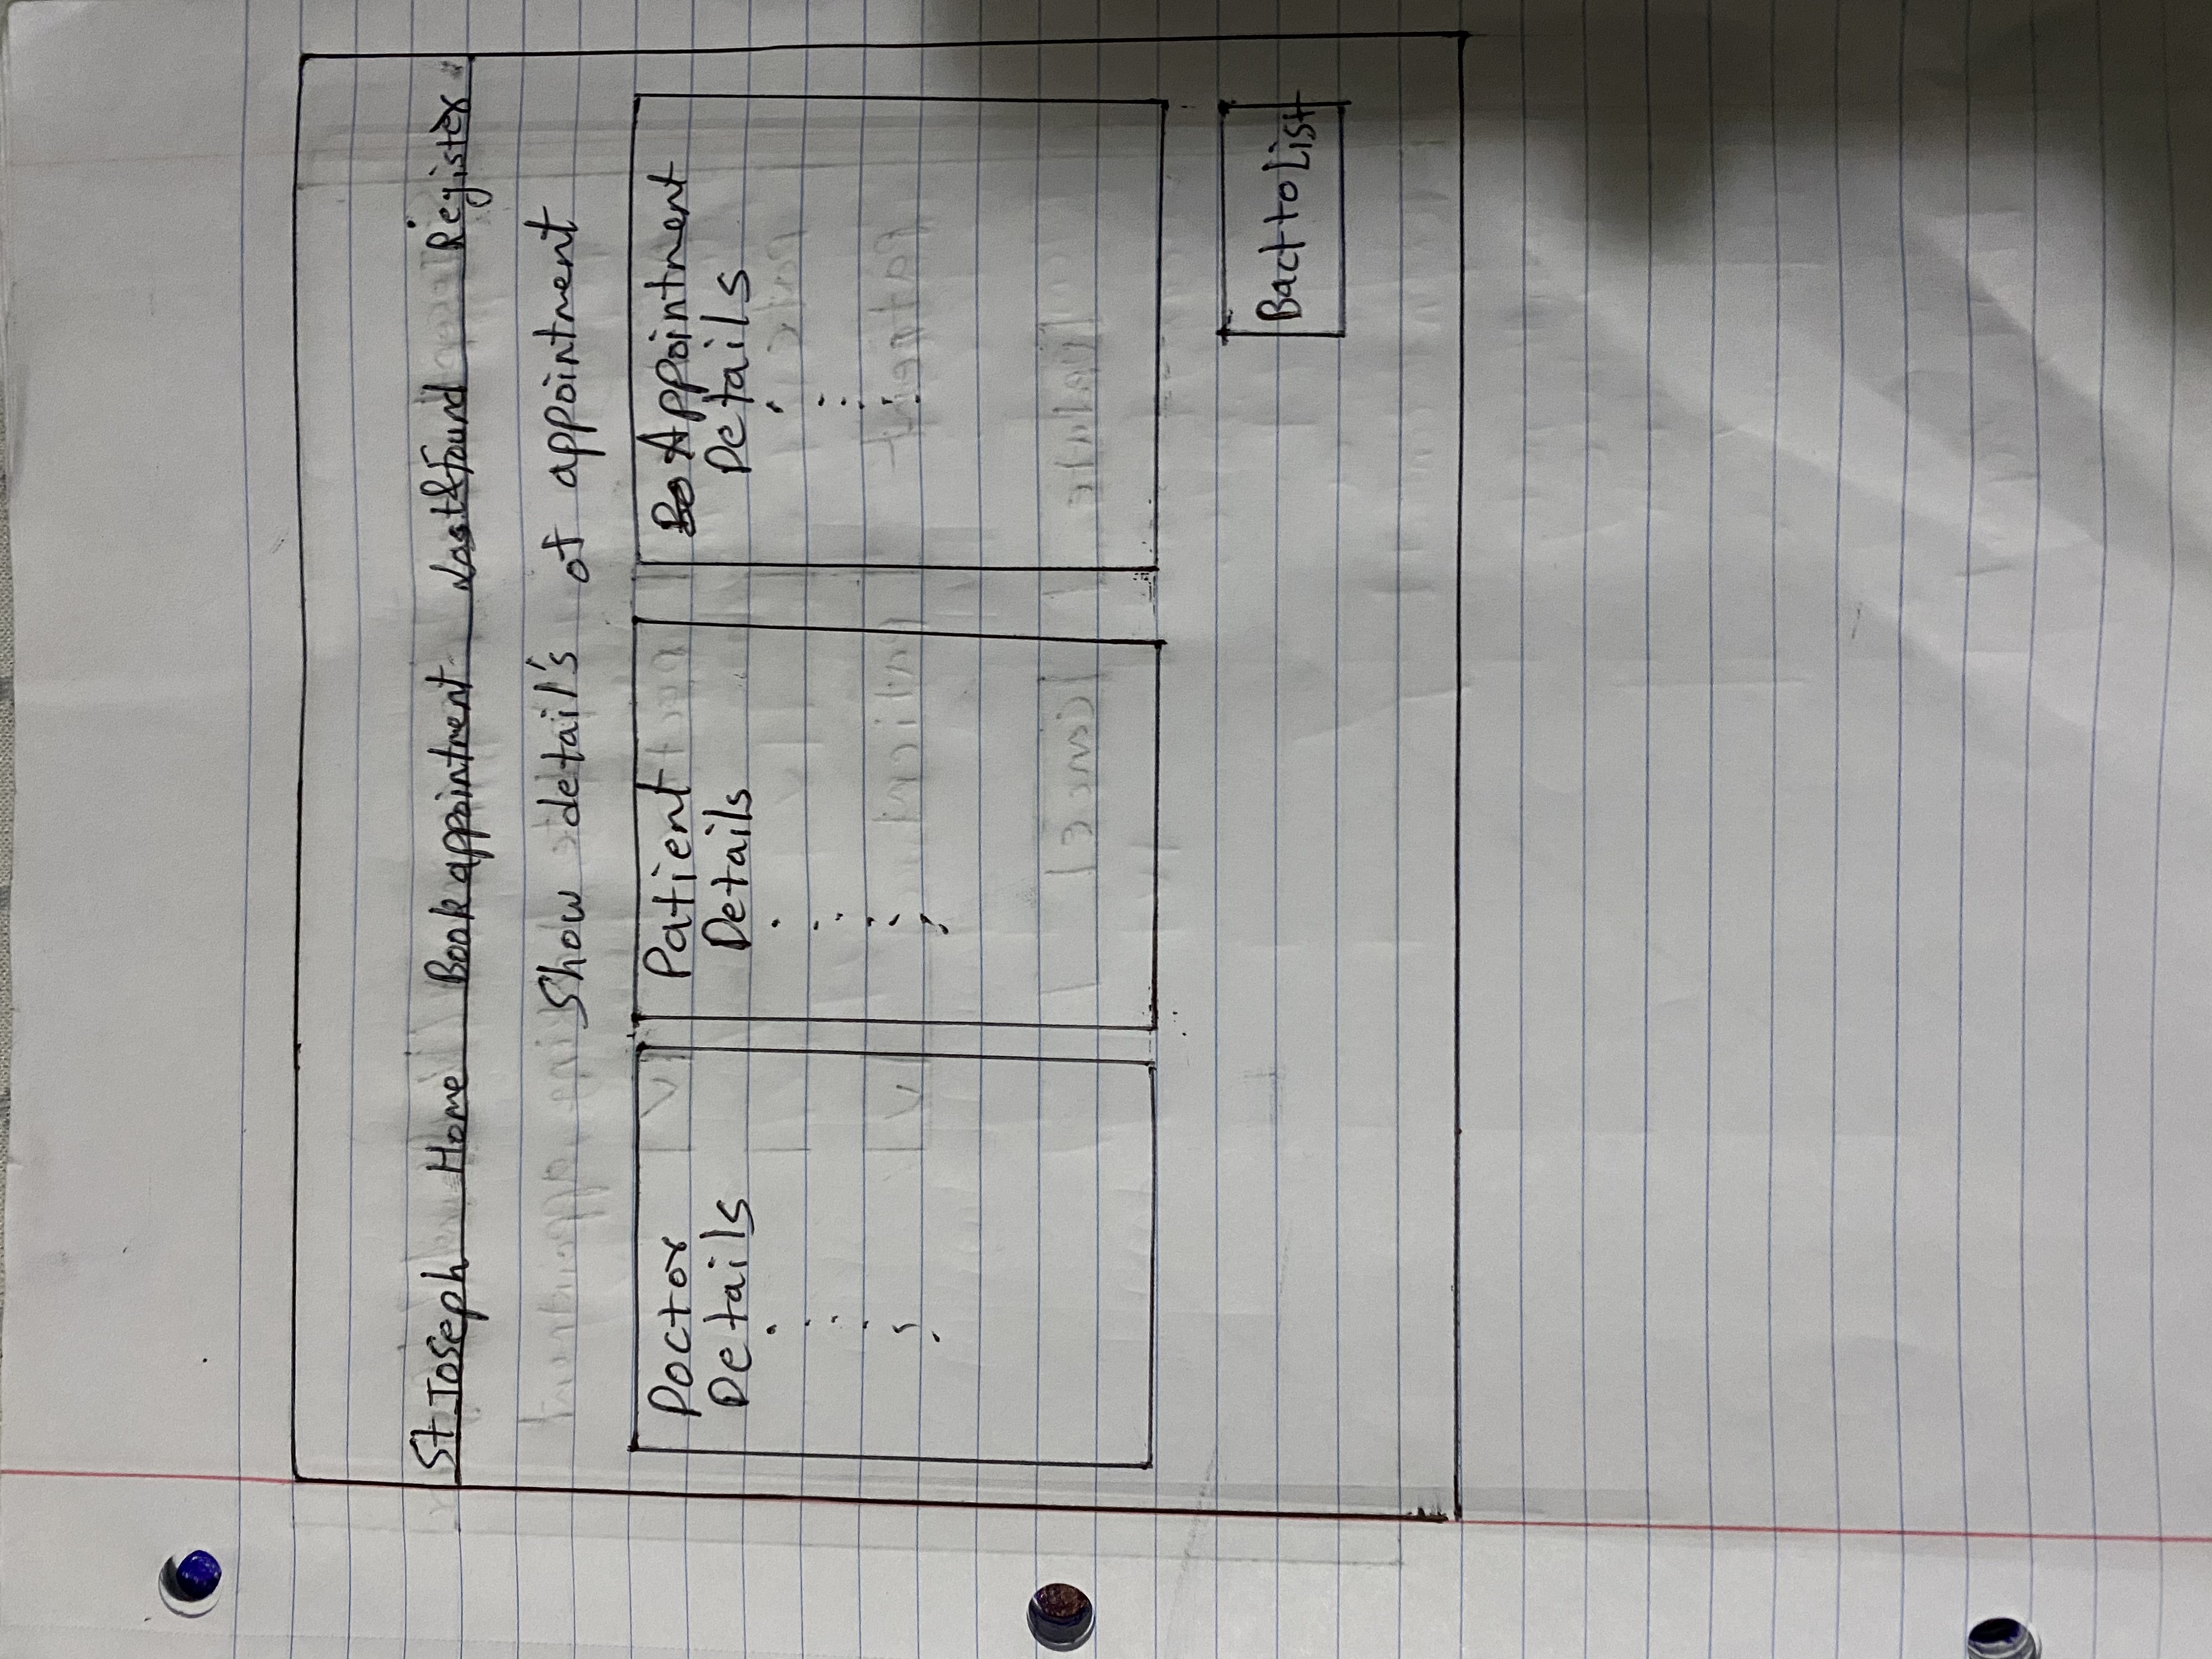 St Joseph Home Book appointment Lost&Found Register
Show detail's of appointment
Doctor
Details
Patient
Details
Appointment
Details
Bact to List